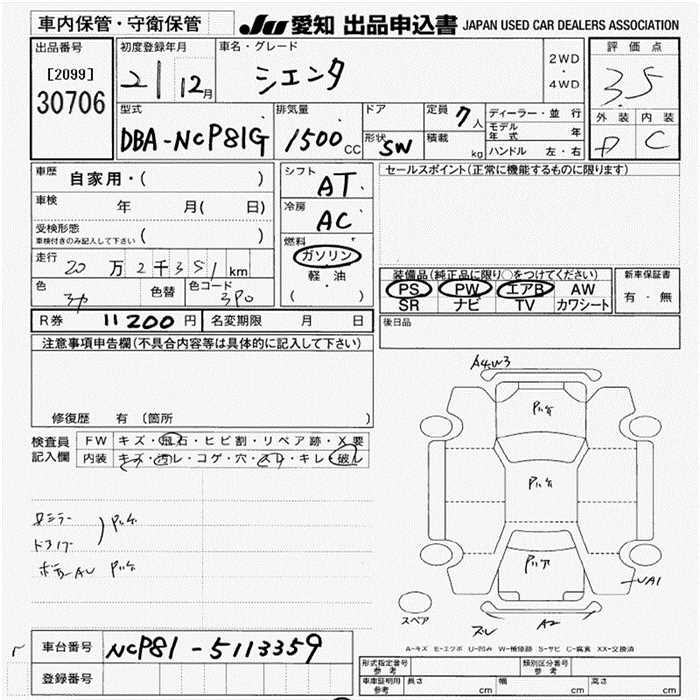 車内保管・守衛保管
JU 愛知 出品申込書 JAPAN USED CAR DEALERS ASSOCIATION
出品番号
[2099]
30706
初度登録年月
21 12月
車名・グレード
シエンタ
2WD
・
4WD
評価点
3.5
外装 内装
D C
型式
DBA-NCP81G
排気量
1500 CC
ドア
形状 SW
定員 7人
積載 kg
ディーラー・並行
モデル年式 年
ハンドル 左・右
車歴 自家用・( )
車検 年 月( 日)
受検形態
車検付きのみ記入して下さい ( )
走行 20万2千351km
色 色替 色コード 3P0
シフト AT
冷房 AC
燃料
ガソリン
軽・油
( )
セールスポイント(正常に機能するものに限ります)
装備品(純正品に限り○をつけてください)
PS PW エアB AW
SR ナビ TV カワシート
新車保証書
有・無
後日品
R券 11200円 名変期限 月 日
注意事項申告欄(不具合内容等は具体的に記入して下さい)
修復歴 有(箇所 )
検査員記入欄
FW キズ・飛石・ヒビ割・リペア跡・X要
内装 キズ・汚レ・コゲ・穴・スレ・キレ・破レ
A4.W3
UA1
A2
スペア
A-キズ E-エクボ U-凹み W-補修跡 S-サビ C-腐食 XX-交換済
車台番号 NCP81-5113359
登録番号
形式指定番号
参考
類別区分番号
参考
車庫証明用
参考
長さ cm 幅 cm 高さ cm